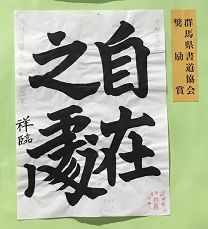 群馬県書道協会
奨励賞
自在
之處
祥臨